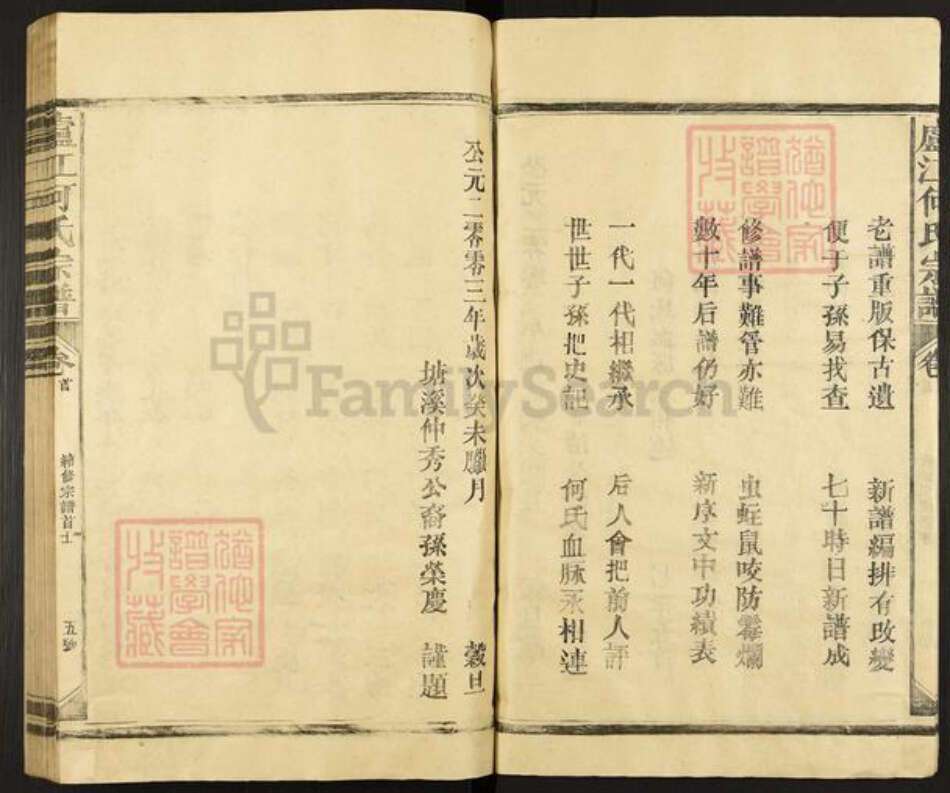 廬江何氏宗譜
卷
老譜重版保古遺 新譜編排有改變
便于子孫易找查 七十時日新譜成
修譜事難管亦難 虫蛀鼠咬防霉爛
數十年后譜仍好 新序文中功績表
一代一代相繼承 后人會把前人評
世世子孫把史記 何氏血脉永相連
公元二零零三年歲次癸未臘月 穀旦
塘溪仲秀公裔孫榮慶 謹題
廬江何氏宗譜
卷首
續修宗譜首士
五
猶他家譜學會收藏
猶他家譜學會收藏
FamilySearch